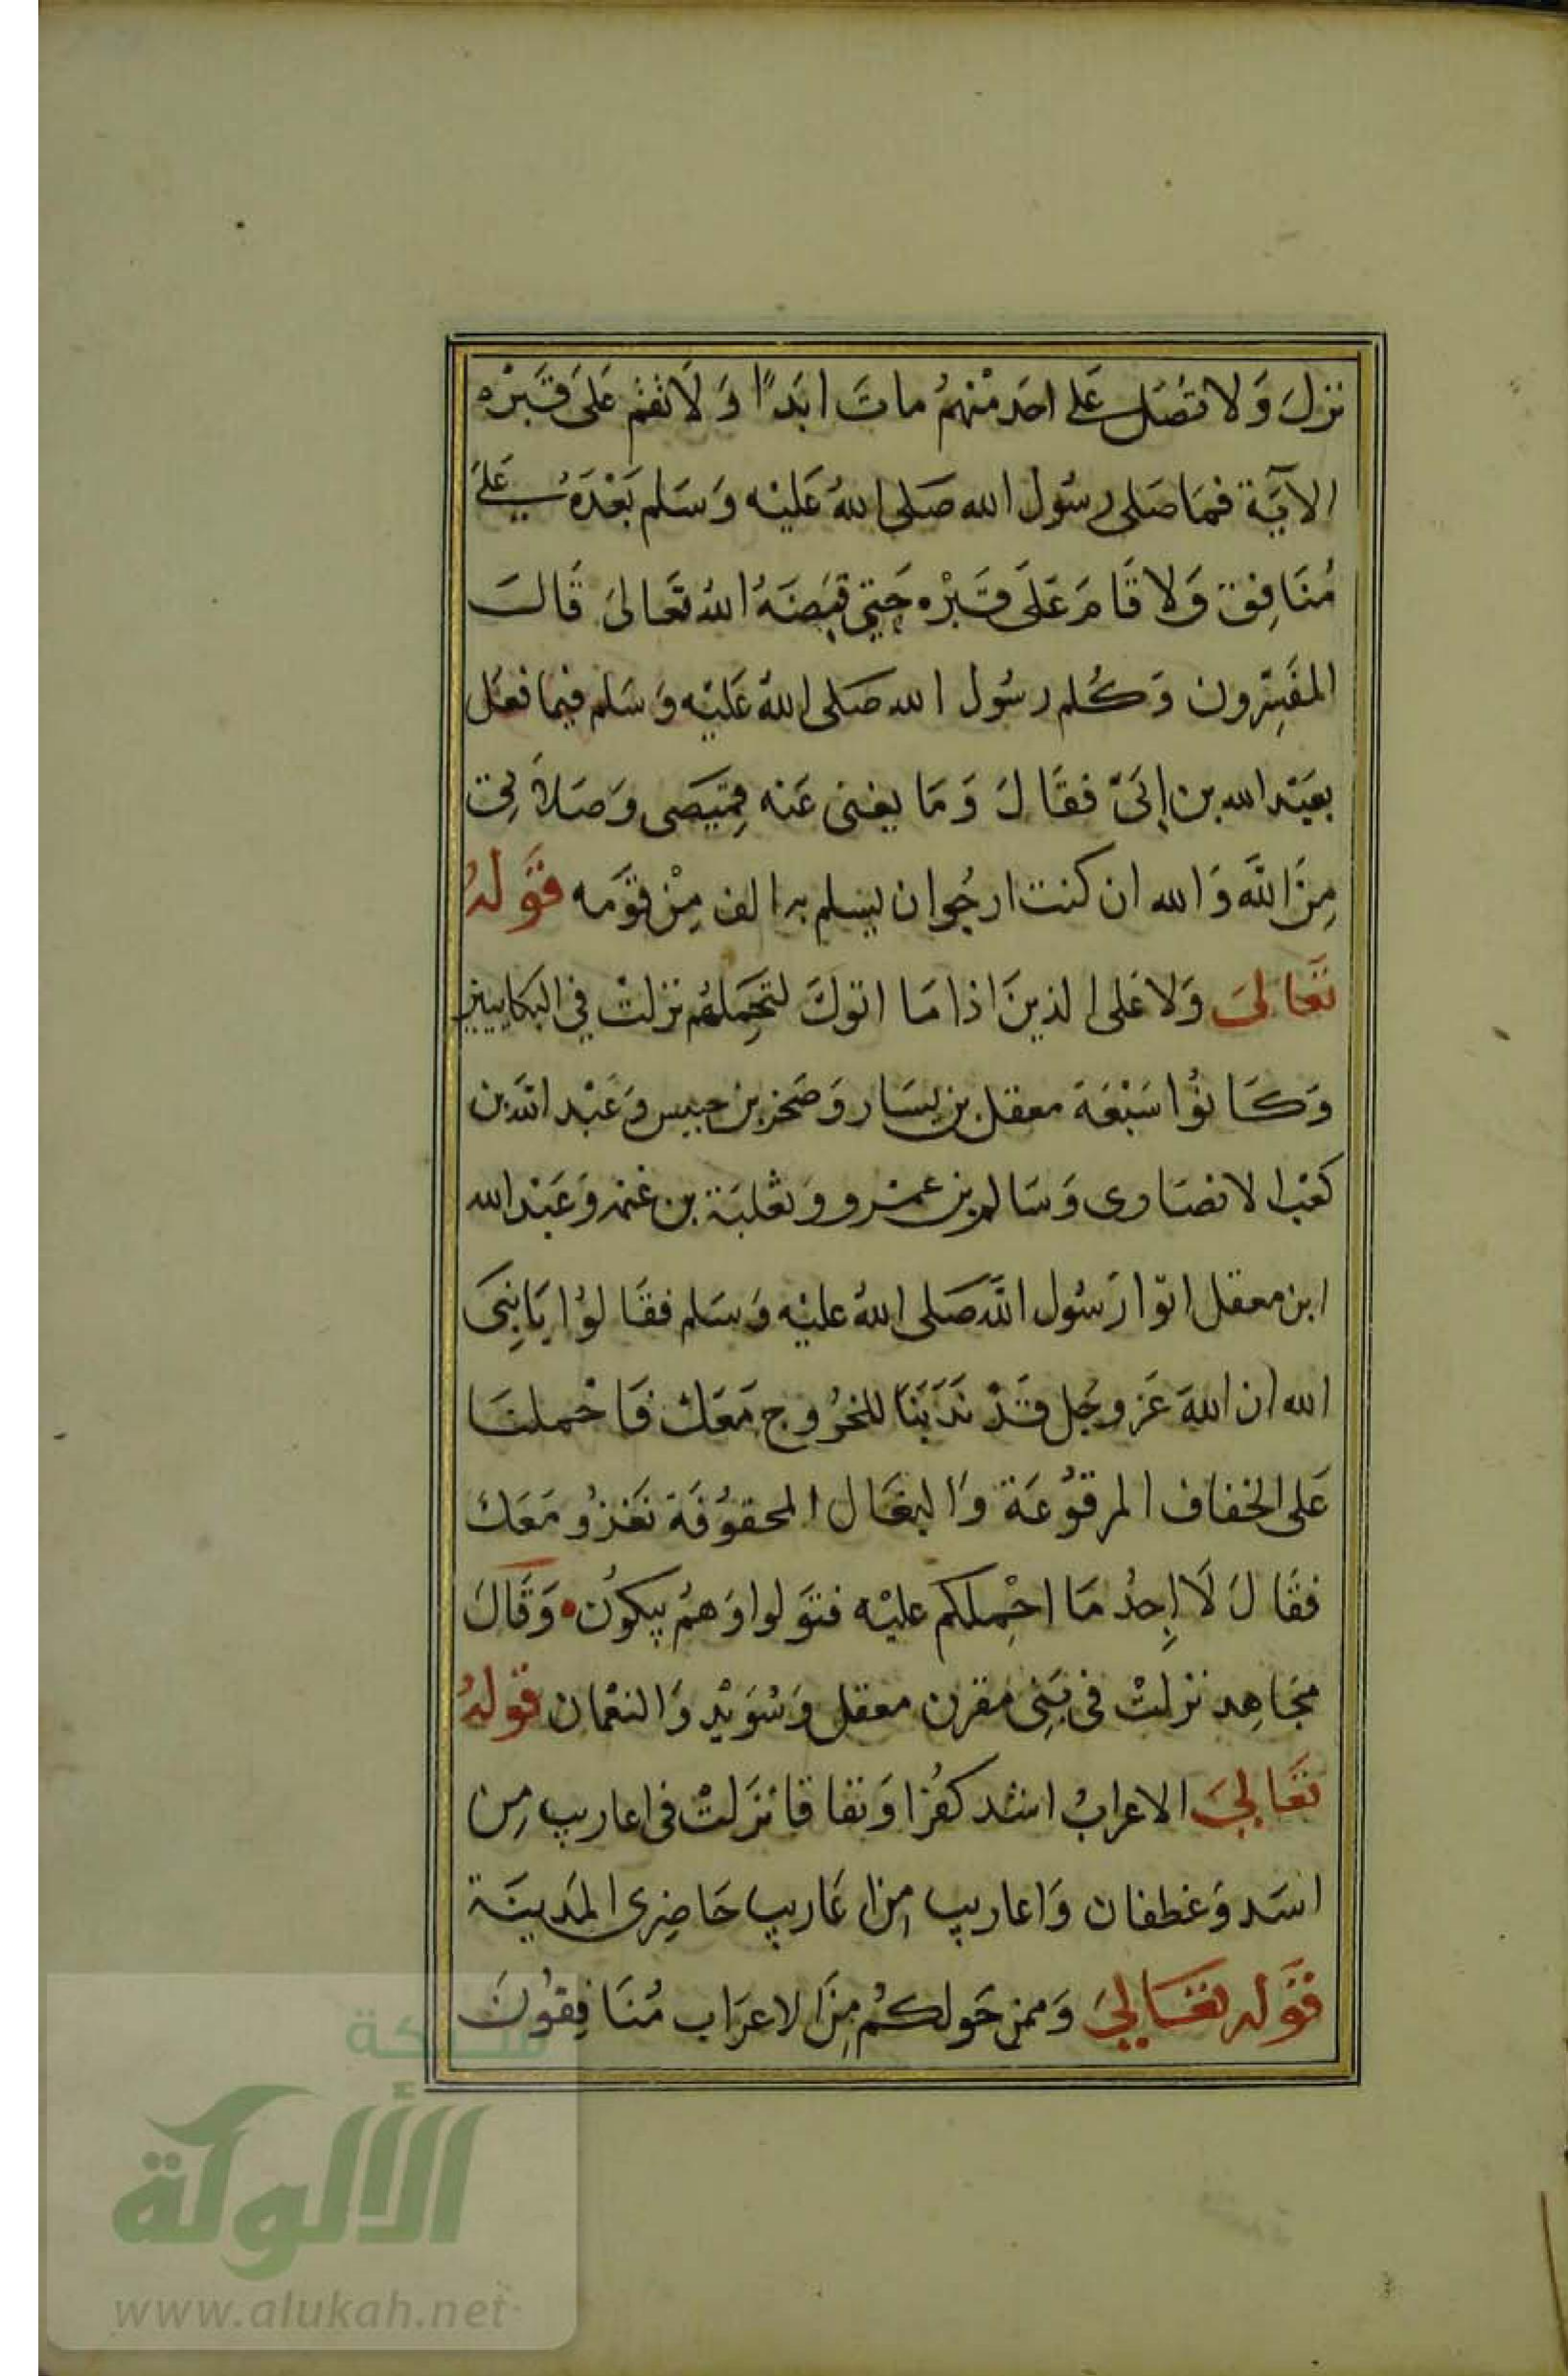 نزل وَلا تصَل على احَد منْهمُ ماتَ ابَدًا وَلَا تقم عَلىَ قَبَرْه
الايَة فمَا صَلى رسُول الله صَلى اللهُ عَليْه وَسَلم بَعْدَهُ عَلىَ
مُنَافِق وَلا قَامَ عَلَى قَبَرْه حَتى قبَضَهُ اللهُ تعَالىَ قَالَ
المفَسِّرون وَكُلم رسُول الله صَلى اللهُ عَليْه وَسَلم فيما فعَل
بعَبْد الله بن ابَىّ فقَالَ وَمَا يغنى عَنه قمِيَصى وَصَلاَتى
مِنَ اللَّه وَالله ان كنت ارجُو ان يسلم به الف مِنْ قوَمه قوَلهُ
تعَالىَ وَلا عَلى الذينَ اذا مَا اتوكَ لتحَمِلهُم نزلتْ في البكايين
وَكاَنوُا سَبْعَة معقل بن يسَار وَصَخر بن خنيس وَعَبْد اللَّه بن
كعْب الانصَاري وَسَالم بن عمْرو وَثعْلبَة بن غنمه وَعَبْد الله
ابن معقل اتوّا رَسُول اللَّه صَلى اللهُ عليْه وَسَلم فقَالوُا يَانِبىَ
الله ان اللهَ عَز وجَل قَدْ نَدَبَنَا للخرُوج مَعَك فَاحْملنَا
عَلى الخفاف المرقوُعَة وَالبغَال المحقوُفَة نغَزوُ مَعَك
فقَالَ لَا اجِدُ مَا احْمِلكم عليْه فتوَلوا وَهمُ يبكوُن وَقَالَ
مجَاهِد نزلتْ فى بَنِى مقرن معقل وَسُوَيْد وَالنعْمان قولهُ
تعَالىَ الاعرابُ اشد كفُرا وَنفاقا نزَلتْ فى اعاريب مِن
اسَد وَغطفان وَاعاريب مِن اعَاريب حَاضِرى المَدينَة
قوَله تعَالىَ وَممن حَولكمُ مِنَ الاعرَاب مُنَافِقوُنَ
شبكة
الألوكة
www.alukah.net